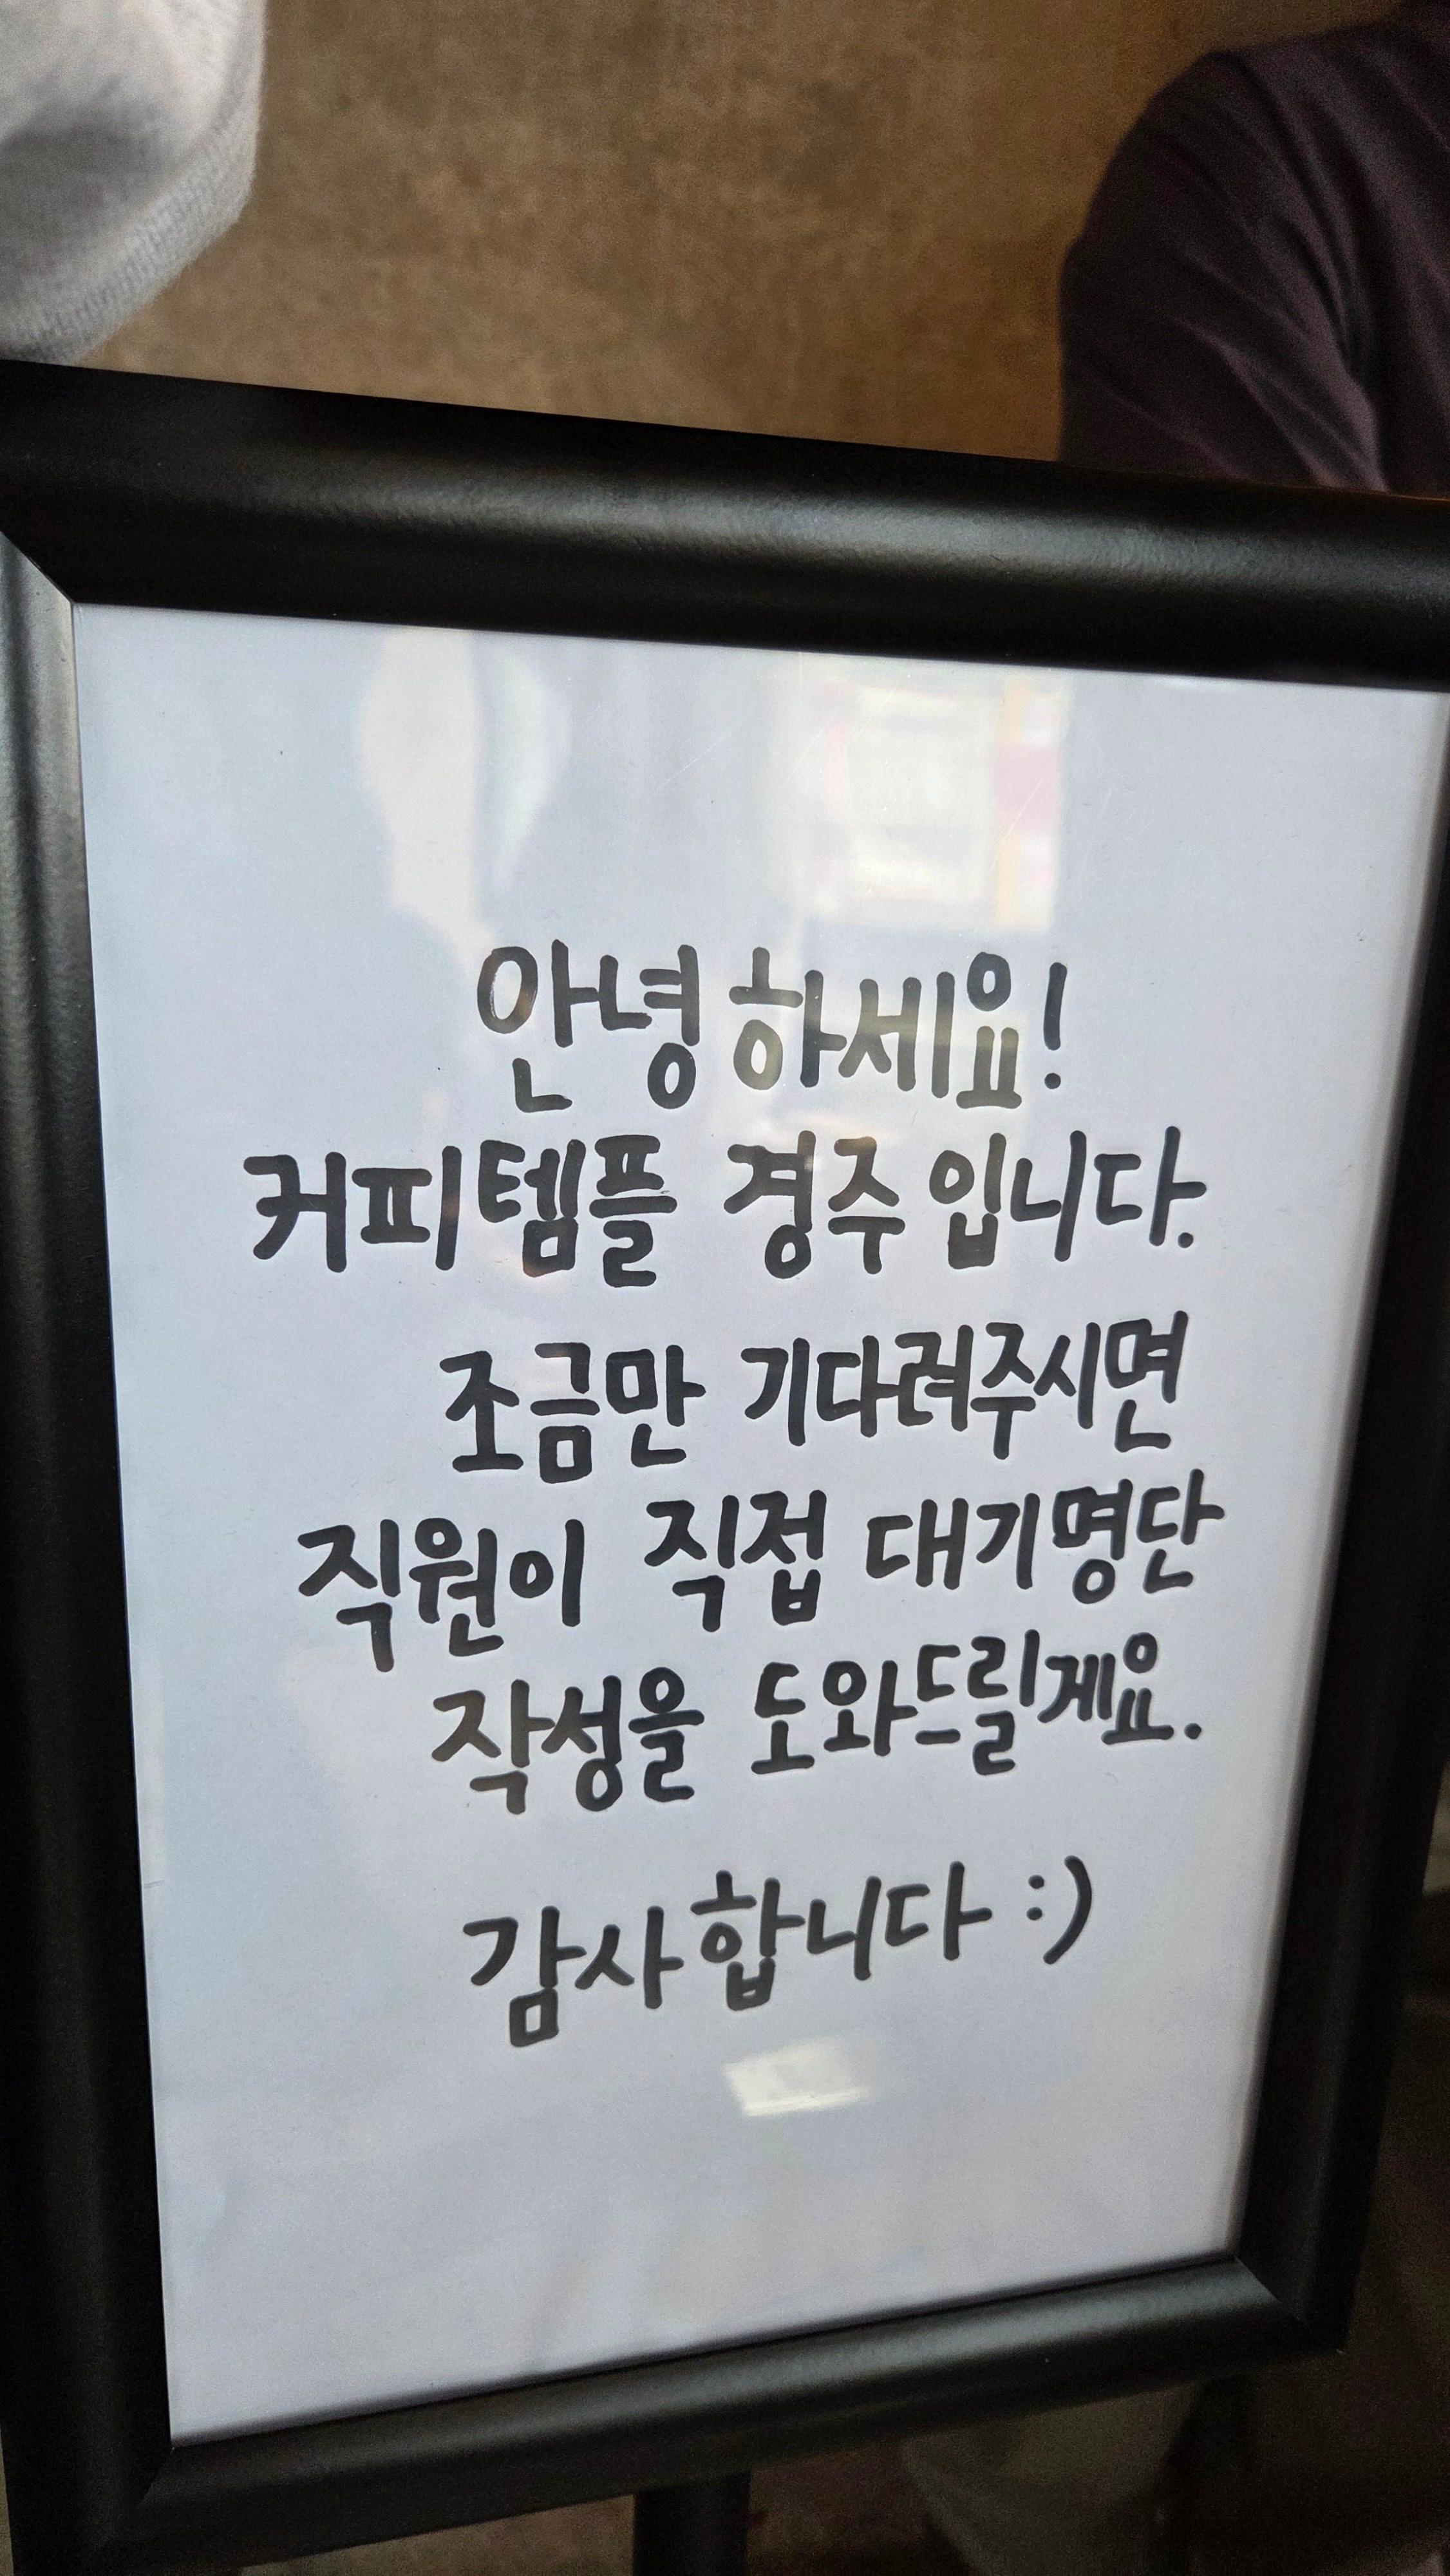 안녕하세요!
커피템플 경주입니다.
조금만 기다려주시면
직원이 직접 대기명단
작성을 도와드릴게요.
감사합니다 :)